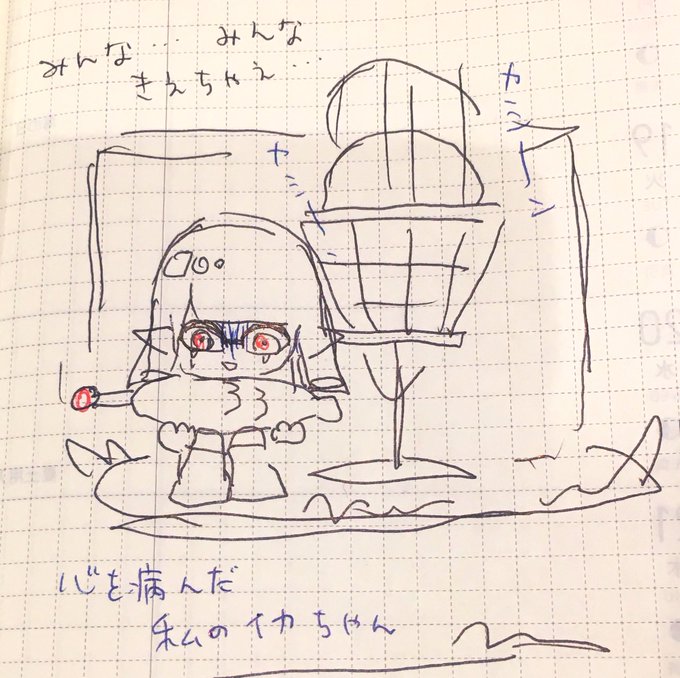 みんな… みんな
きえちゃえ…
心を病んだ
私のイカちゃん
19
火
20
水
21